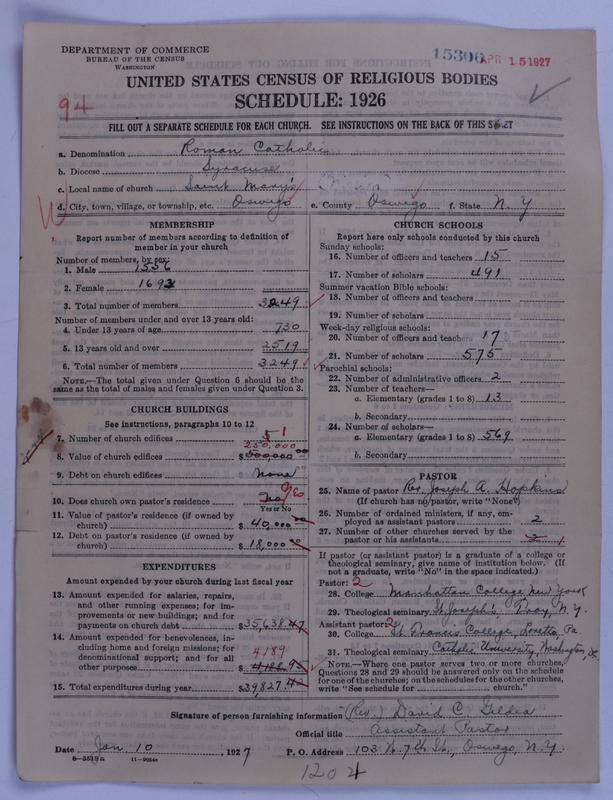 DEPARTMENT OF COMMERCE
BUREAU OF THE CENSUS
WASHINGTON
15306 APR 15 1927
UNITED STATES CENSUS OF RELIGIOUS BODIES
SCHEDULE: 1926
94
FILL OUT A SEPARATE SCHEDULE FOR EACH CHURCH. SEE INSTRUCTIONS ON THE BACK OF THIS SHEET
a. Denomination Roman Catholic
b. Diocese Syracuse
c. Local name of church Saint Mary's
d. City, town, village, or township, etc. Oswego e. County Oswego f. State N. Y
MEMBERSHIP
Report number of members according to definition of
member in your church
Number of members, by sex:
1. Male 1556
2. Female 1693
3. Total number of members 3249
Number of members under and over 13 years old:
4. Under 13 years of age 730
5. 13 years old and over 2519
6. Total number of members 3249
NOTE.—The total given under Question 6 should be the
same as the total of males and females given under Question 3.
CHURCH BUILDINGS
See instructions, paragraphs 10 to 12
7. Number of church edifices 1
250,000
8. Value of church edifices $500,000 00
9. Debt on church edifices None
10. Does church own pastor's residence No Yes
Yes or No
11. Value of pastor's residence (if owned by
church) $40,000 00
12. Debt on pastor's residence (if owned by
church) $18,000 00
EXPENDITURES
Amount expended by your church during last fiscal year
13. Amount expended for salaries, repairs,
and other running expenses; for im-
provements or new buildings; and for
payments on church debt $35,638.47
14. Amount expended for benevolences, in-
cluding home and foreign missions; for
denominational support; and for all
other purposes 4189 $4,188.95
15. Total expenditures during year $39,827.42
CHURCH SCHOOLS
Report here only schools conducted by this church
Sunday schools:
16. Number of officers and teachers 15
17. Number of scholars 491
Summer vacation Bible schools:
18. Number of officers and teachers
19. Number of scholars
Week-day religious schools:
20. Number of officers and teachers 17
21. Number of scholars 575
Parochial schools:
22. Number of administrative officers 2
23. Number of teachers—
a. Elementary (grades 1 to 8) 13
b. Secondary
24. Number of scholars—
a. Elementary (grades 1 to 8) 569
b. Secondary
PASTOR
25. Name of pastor Rev. Joseph A. Hopkins
(If church has no pastor, write "None")
26. Number of ordained ministers, if any, em-
ployed as assistant pastors 2
27. Number of other churches served by the
pastor or his assistants
If pastor (or assistant pastor) is a graduate of a college or
theological seminary, give name of institution below. (If
not a graduate, write "No" in the space indicated.)
Pastor: 2
28. College Manhattan College New York
29. Theological seminary St. Joseph's Troy, N. Y.
Assistant pastor: 2
30. College St. Francis College, Loretto, Pa
31. Theological seminary Catholic University, Washington, D.C.
NOTE.—Where one pastor serves two or more churches,
Questions 28 and 29 should be answered only on the schedule
for one of the churches; on the schedules for the other churches,
write "See schedule for church."
Signature of person furnishing information (Rev.) David C. Gildea
Official title Assistant Pastor
Date Jan. 10, 1927 P. O. Address 103 W. 7th St., Oswego, N.Y.
8—3519a 11—9034c
1204